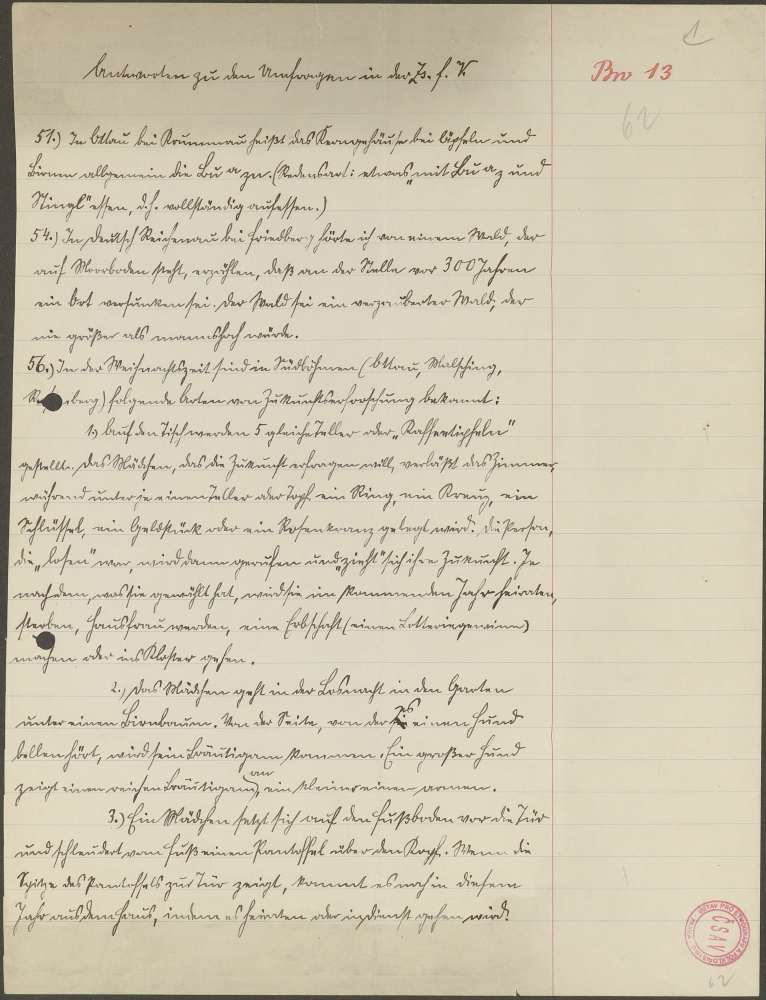 1
Antworten zu den Umfragen in der Zs. f. V.
Bn 13
62
51.) In Ottau bei Krummau heißt das Kerngehäuse bei Äpfeln und
Birnen allgemein die Bu a zn. (Redensart: etwas „mit Bu a z und
Stingl" essen, d.h. vollständig aufessen.)
54.) In Deutsch Reichenau bei Friedberg hörte ich von einem Wald, der
auf Moorboden steht, erzählen, daß an der Stelle vor 300 Jahren
ein Ort versunken sei. Der Wald sei ein verzauberter Wald, der
nie größer als mannshoch würde.
56.) In der Weihnachtszeit sind in Südböhmen (Ottau, Malsching,
berg) folgende Arten von Zukunftserforschung bekannt:
1.) Auf den Tisch werden 5 gleiche Teller oder „Kaffeetipfeln"
gestellt. Das Mädchen, das die Zukunft erfragen will, verläßt das Zimmer,
während unter je einen Teller oder Topf ein Ring, ein Kreuz, ein
Schlüssel, ein Geldstück oder ein Rosenkranz gelegt wird. Die Person,
die „losen" war, wird dann gerufen und „zieht" sich ihre Zukunft. Je
nach dem, was sie gewählt hat, wird sie im kommenden Jahr heiraten,
sterben, Hausfrau werden, eine Erbschaft (einen Lotteriegewinn)
machen oder ins Kloster gehen.
2.) Das Mädchen geht in der Losnacht in den Garten
unter einen Birnbaum. Von der Seite, von der es einen Hund
bellen hört, wird sein Bräutigam kommen. Ein großer Hund
zeigt einen reichen Bräutigam an, ein kleiner einen armen.
3.) Ein Mädchen setzt sich auf den Fußboden vor die Tür
und schleudert vom Fuß einen Pantoffel über den Kopf. Wenn die
Spitze des Pantoffels zur Tür zeigt, kommt es noch in diesem
Jahr aus dem Haus, indem es heiraten oder in Dienst gehen wird.
ČSAV
62